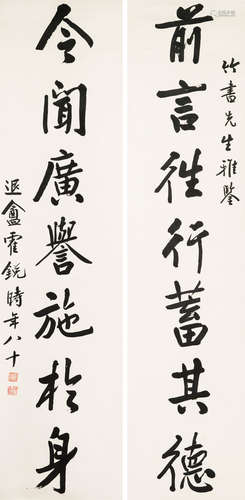 竹書先生雅鑒
前言往行蓄其德
令聞廣譽施於身
退盦霍銳時年八十